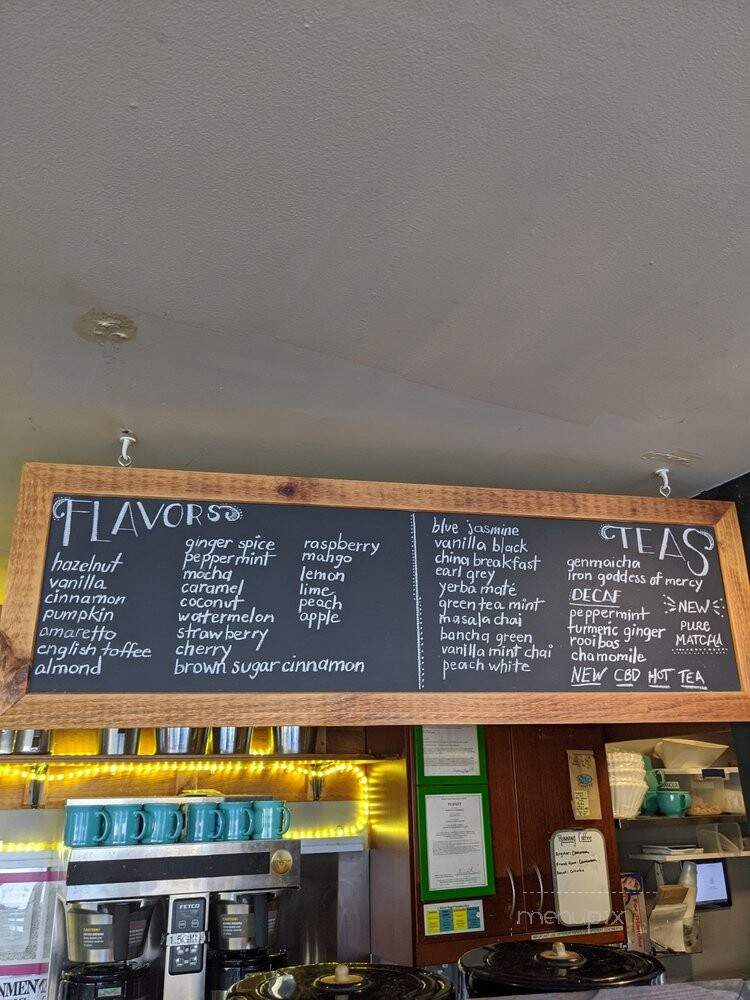 FLAVORS
hazelnut
vanilla
cinnamon
pumpkin
amaretto
english toffee
almond
ginger spice
peppermint
mocha
caramel
coconut
watermelon
strawberry
cherry
brown sugar cinnamon
raspberry
mango
lemon
lime
peach
apple
TEAS
blue jasmine
vanilla black
china breakfast
earl grey
yerba maté
green tea mint
masala chai
bancha green
vanilla mint chai
peach white
genmaicha
iron goddess of mercy
DECAF
peppermint
turmeric ginger
rooibos
chamomile
NEW CBD HOT TEA
NEW
PURE
MATCHA
FETCO
menupix